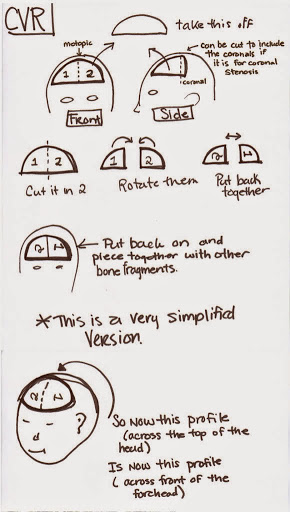 CVR
take this off
motopic
1 2
Front
Side
coronal
can be cut to include
the coronals if
it is for coronal
stenosis
1 2
Cut it in 2
1 2
Rotate them
Put back
together
Put back on and
piece together with other
bone fragments.
*This is a very simplified
version.
So now this profile
(across the top of the
head)
Is now this profile
(across front of the
forehead)